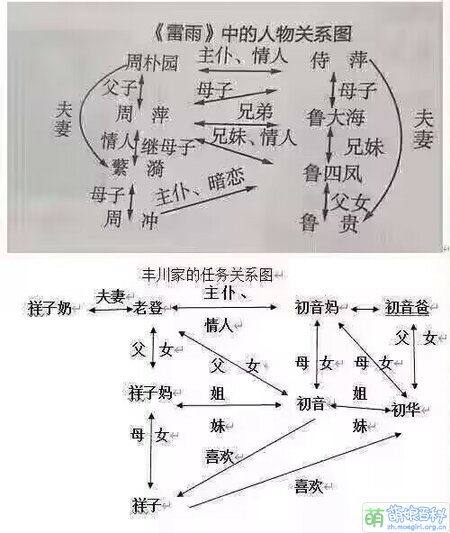 《雷雨》中的人物关系图
周朴园 主仆、情人 侍 萍
父子 母子 母子
夫妻 周 萍 兄弟 鲁大海 夫妻
情人 继母子 兄妹、情人 兄妹
繁 漪 鲁四凤
母子 主仆、暗恋 父女
周 冲 鲁 贵
丰川家的任务关系图
祥子奶 夫妻 老登 主仆、 初音妈 初音爸
情人
父 女 父 女 母 女 母 女 父 女
祥子妈 姐 初音 姐 初华
妹 妹
母 女 喜欢
祥子 喜欢
萌 萌娘百科
zh.moegirl.org.cn